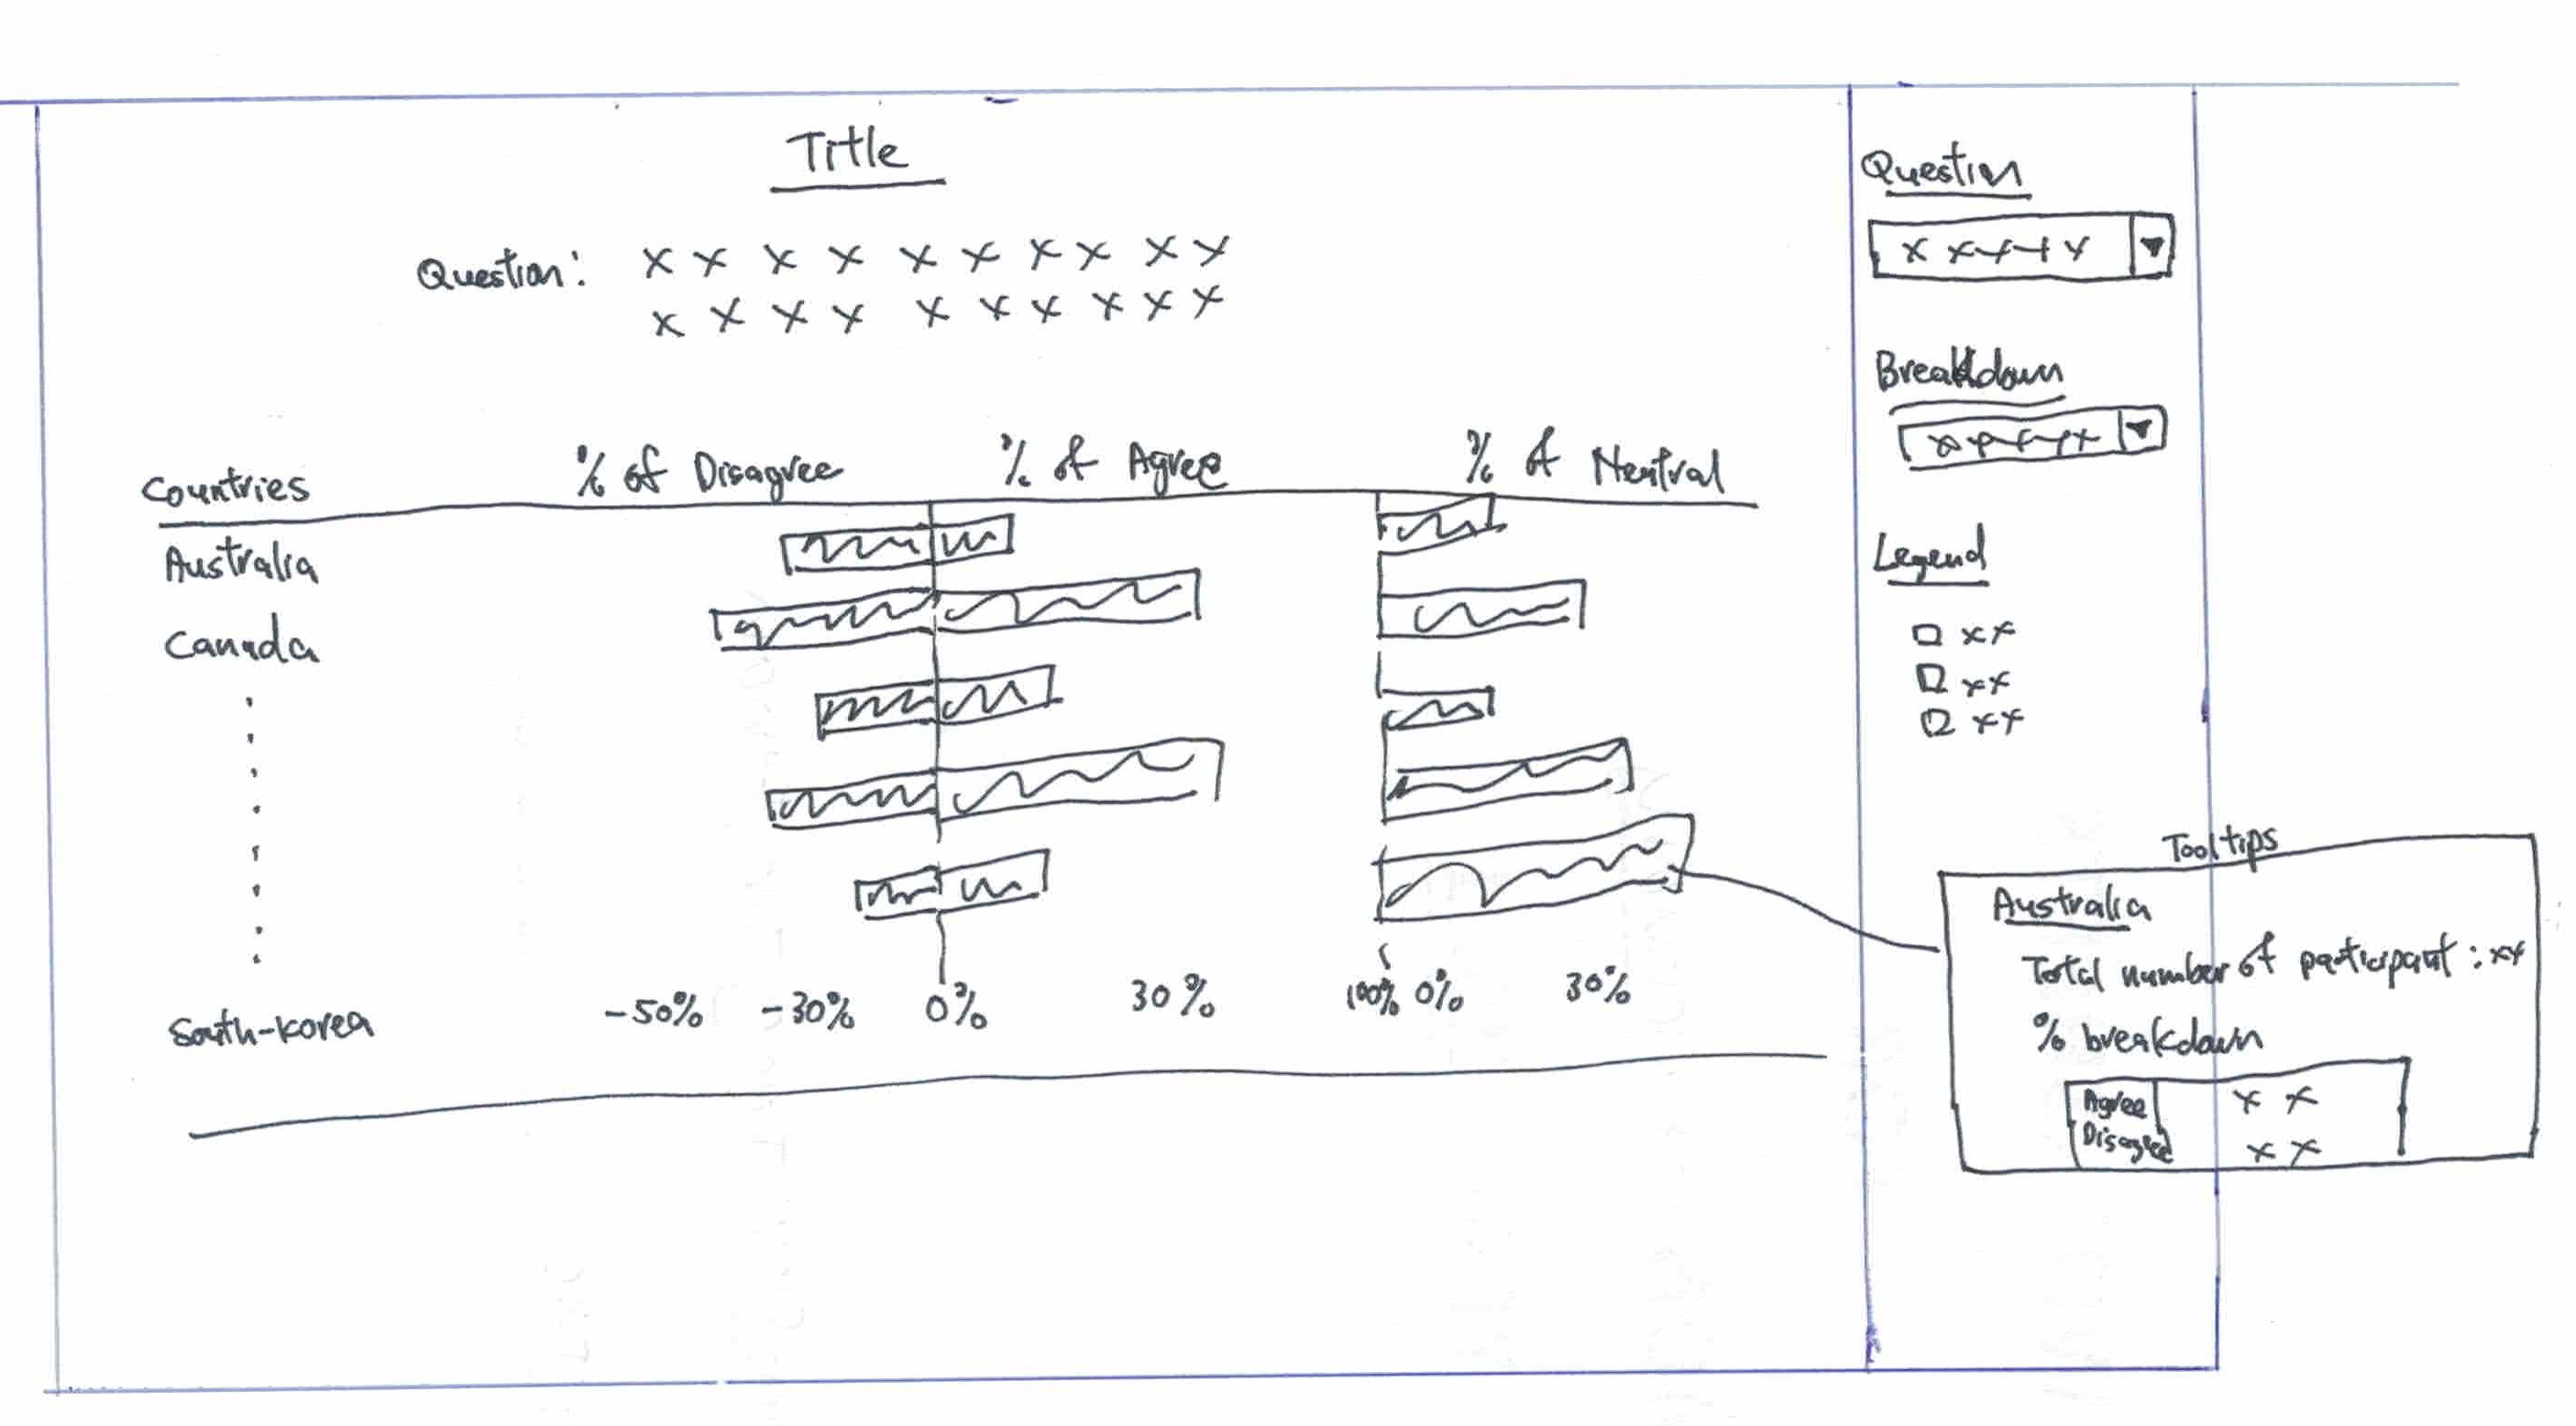 Title
Question: x x x x x x x x x x
x x x x x x x x x x
Countries % of Disagree % of Agree % of Neutral
Australia
Canada
South-korea
-50% -30% 0% 30% 100% 0% 30%
Question
x x x x x
Breakdown
x x x x x
Legend
xx
xx
xx
Tooltips
Australia
Total number of participant : xx
% breakdown
Agree x x
Disagree x x